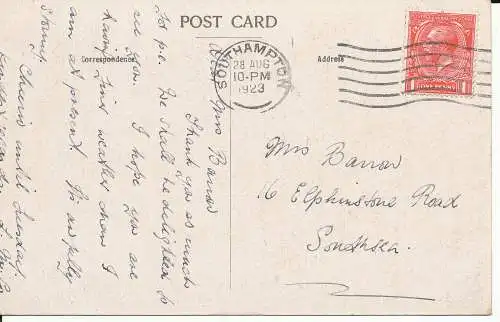 POST CARD
Correspondence
Address
SOUTHAMPTON
28 AUG
10-PM
1923
ONE PENNY
1
Dear Mrs Barrow
Thank you so much
for p.c. We shall be delighted to
see you. I hope you are
having fine weather down I
am at present. It's awfully
stormy.
Cheerio until Tuesday.
Mrs Barrow
16 Elphinstone Road
Southsea.